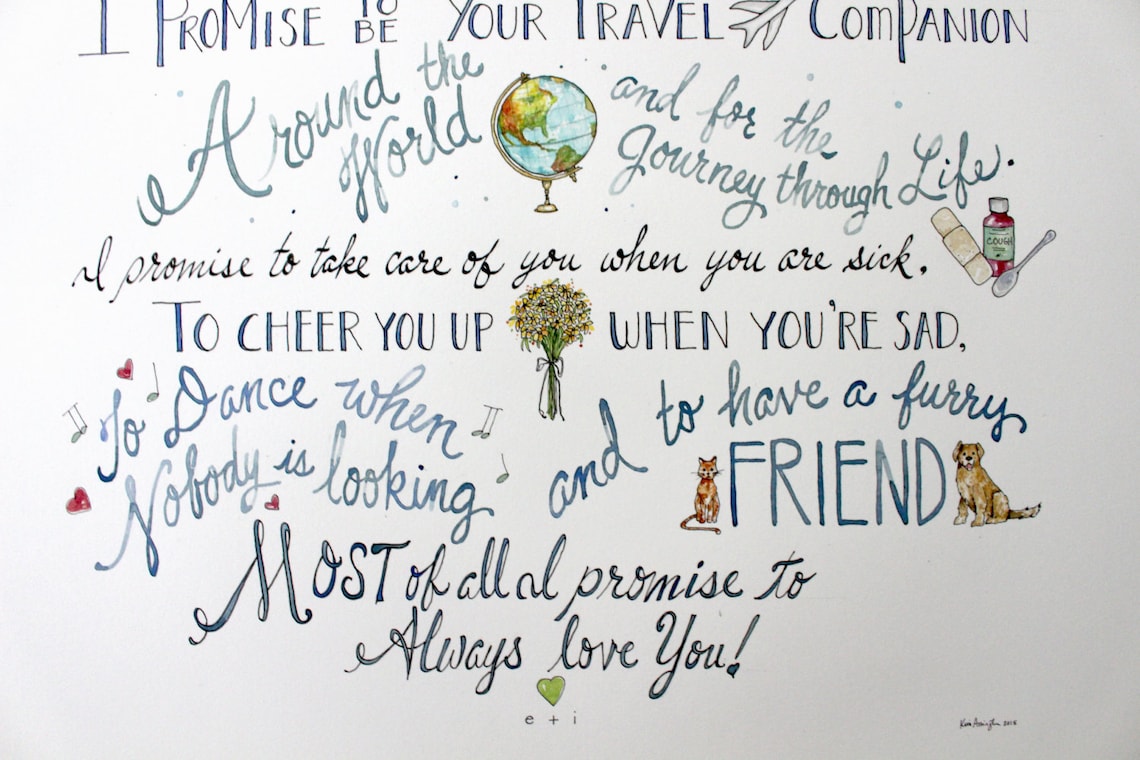 I PROMISE TO BE YOUR TRAVEL COMPANION
Around the World and for the Journey through Life.
COUGH
I promise to take care of you when you are sick,
TO CHEER YOU UP WHEN YOU'RE SAD,
To Dance when Nobody is looking and to have a furry FRIEND
MOST of all I promise to
Always love You!
e + i
2015